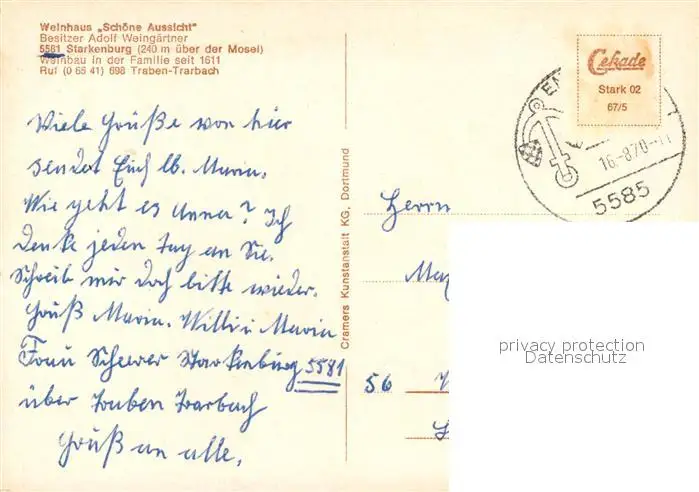 Weinhaus „Schöne Aussicht"
Besitzer Adolf Weingärtner
5581 Starkenburg (240 m über der Mosel)
Weinbau in der Familie seit 1611
Ruf (0 65 41) 698 Traben-Trarbach
Viele Grüße von hier
sendet Euch lb. Maria.
Wie geht es Anna? Ich
denke jeden Tag an Sie.
Schreib mir doch bitte wieder.
Gruß Maria. Willi u Maria
Frau Scheerer Starkenburg 5581
über Traben Trarbach
Gruß an alle.
Cramers Kunstanstalt KG, Dortmund
Cekade
Stark 02
67/5
16.-8.70-11
5585
Herrn
56
privacy protection
Datenschutz